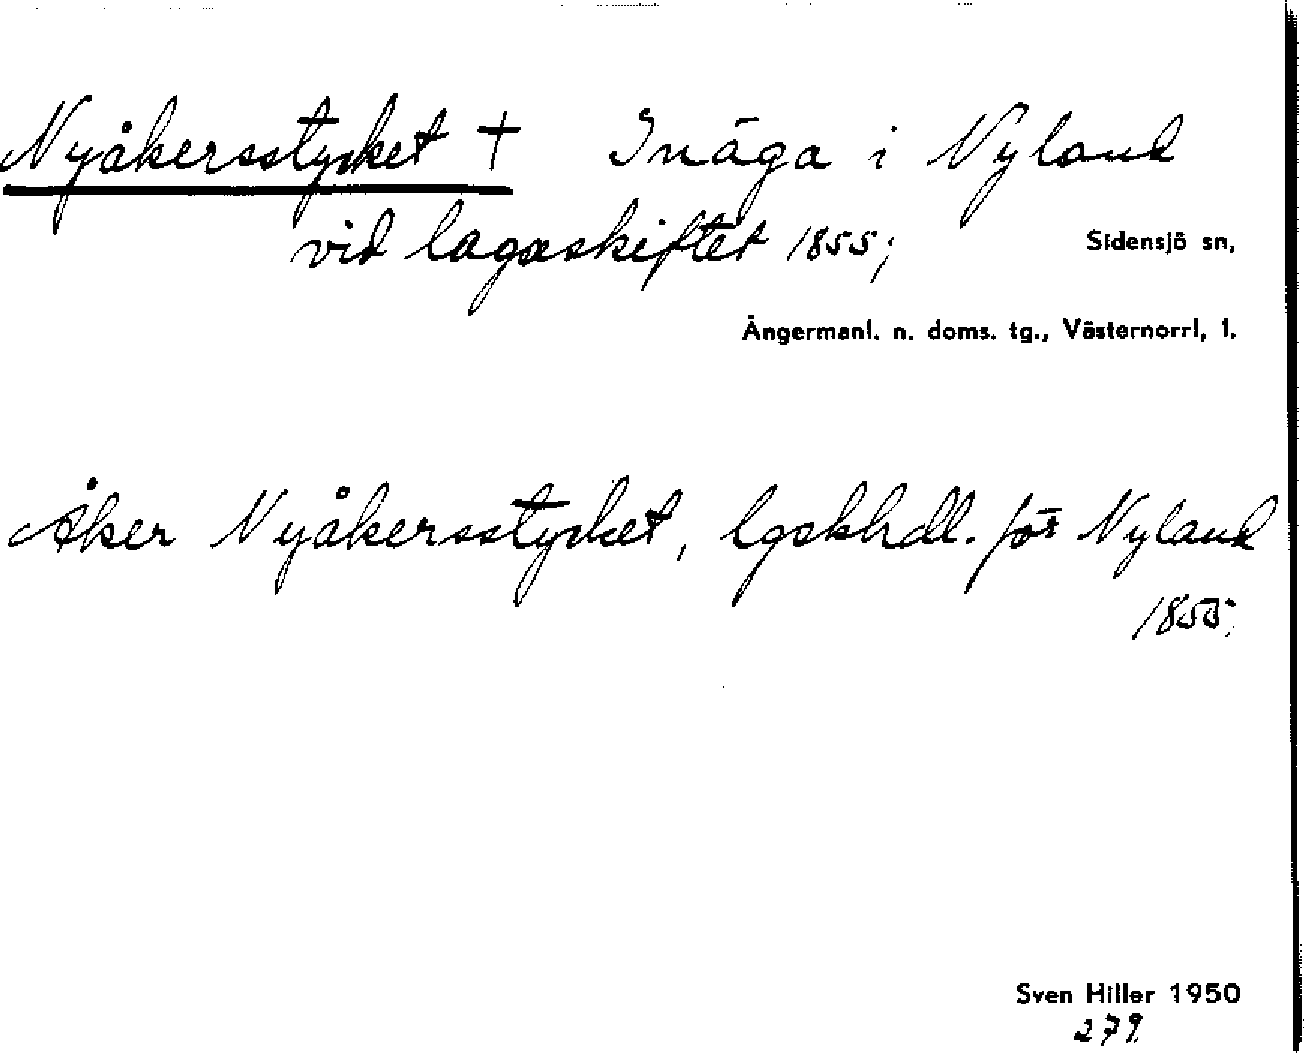 Nyåkersstycket † Inäga i Nyland
vid lagaskiftet 1855;
Sidensjö sn,
Ångermanl. n. doms. tg., Västernorrl, l.
Åker Nyåkersstycket, lgskhdl. för Nyland
1855;
Sven Hiller 1950
279.